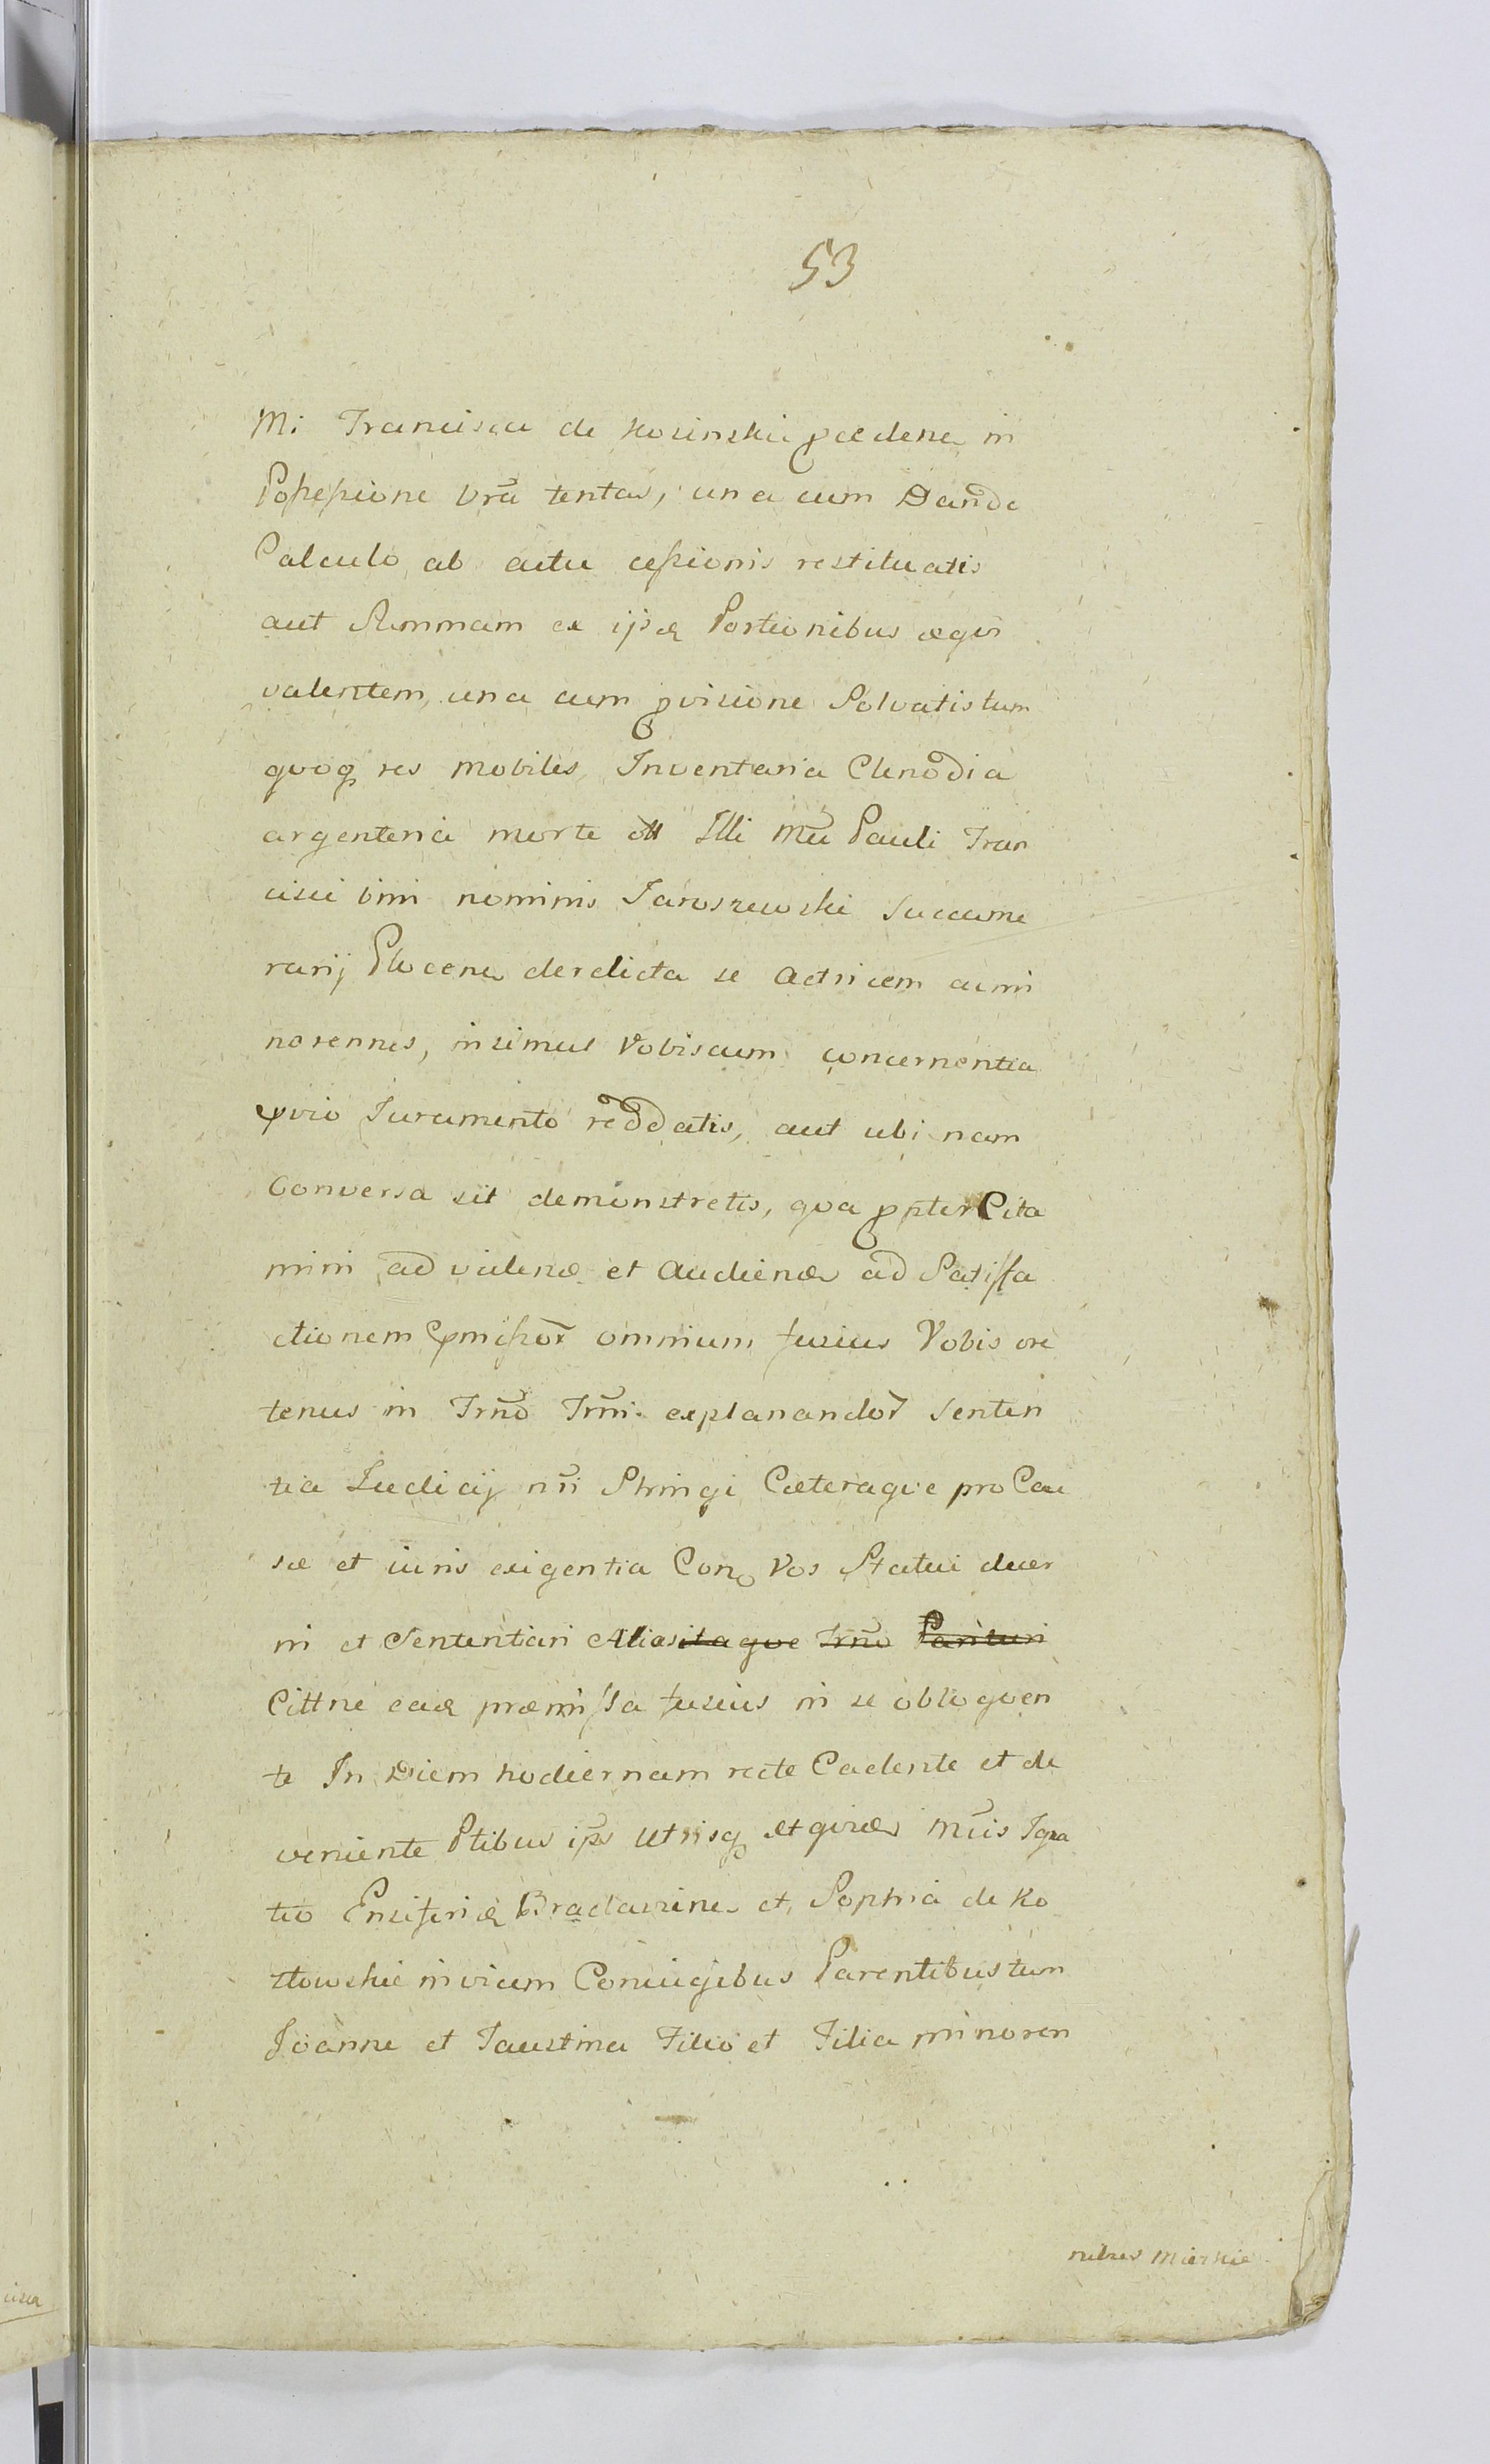 53
M: Francisca de Kosinskie pcedene in
Possessione vrã tentas, una cum Dando
Calculo ab actu cessionis restituatis
aut Summam ex ipsis Portionibus æqui
valentem, una cum pvisione Solvatis tum
qvoq res mobiles, Inventaria Clenodia
argenteria morte olt Illi Mci Pauli Fran
cisci bini nominis Jaroszewski Succame
rarij Plocens derelicta se Actricem cum
norennes, insimul Vobiscum concernentia
pvio Juramento reddatis, aut ubi nam
Conversa sit demonstretis, qva ppter Cita
mini ad videnđ et Audiendũ ad Satisfa
ctionem pmissor omnium fusius Vobis ore
tenus in Trnõ Trmi explanandor Senten
tia Judicij nri Stringi Cæteraqve pro Cau
sæ et iuris exigentia Con Vos Statui decer
ni et Sententiari Alias itaqve Trnõ Parituri
Cittne eađ præmissa fusius in se obloqven
te In Diem hodiernam recte Cadente et de
veniente Ptibus ips utrisq et qvidem Mcis Igna
tio Ensifero Braclaviens et Sophia de Ko
tlowskie invicem Coniugibus Parentibus tum
Joanne et Faustina Filio et Filia minoren
nibus Mierkie